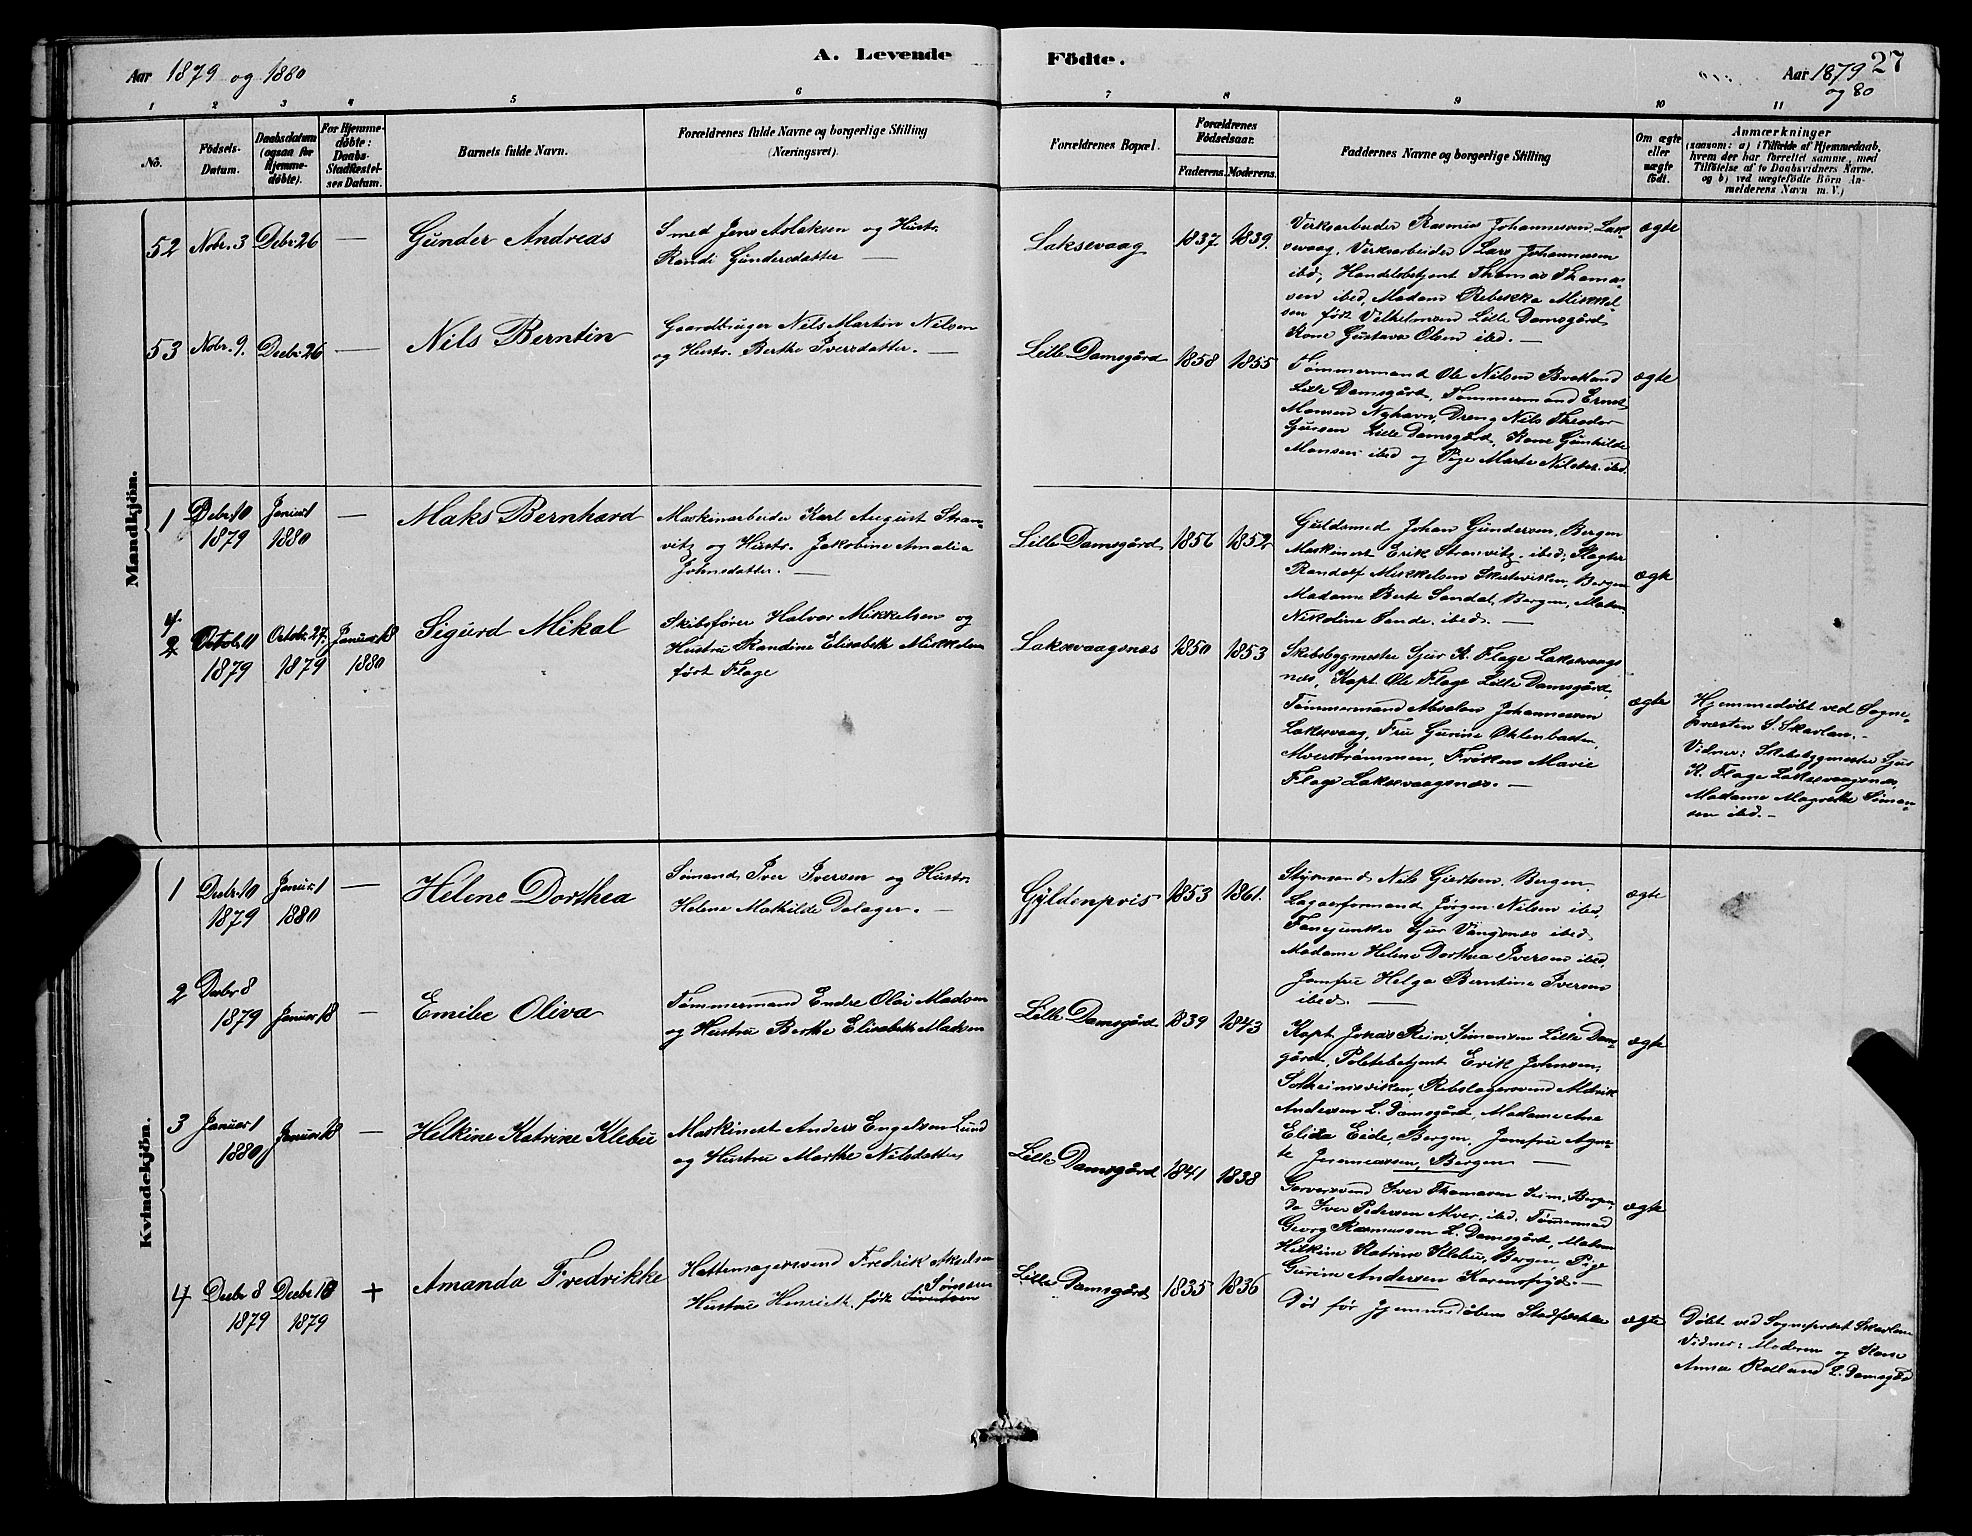 Aar 1879 og 1880
A. Levende Födte.
Aar 1879 og 80
27
1 2 3 4 5 6 7 8 9 10 11
No.
Födsels-
Datum.
Daabsdatum
(ogsaa for
Hjemme-
døbte).
For Hjemme-
døbte:
Daabs-
Stadfæstel-
ses Datum.
Barnets fulde Navn.
Forældrenes fulde Navne og borgerlige Stilling
(Næringsvei).
Forældrenes Bopæl.
Forældrenes
Födselsaar.
Faderens. Moderens.
Faddernes Navne og borgerlige Stilling
Om ægte
eller
uægte
födt.
Anmærkninger
(saasom: a) i Tilfælde af Hjemmedaab,
hvem der har forrettet samme, med
Tilföielse af to Daabsvidners Navne.
og b) ved uægtefödte Börn An-
melderens Navn m. V.)
Mandkjön.
52 Nobr. 3 Debr. 26 — Gunder Andreas
Smed Jens Aslaksen og Hustr.
Randi Gundersdatter —
Laksevaag 1837 1839.
Virksarbeider Rasmus Johannessen Lak-
sevaag, Virksarbeider Lars Johannessen
ibd, Handelsbetjent Thomas Thoma-
sen ibed, Madam Rebekka Mikkel-
sen født Vilhelmsen Lille Damsgård
Kone Gustava Olsen ibed. —
ægte
53 Nobr. 9. Decbr. 26 — Nils Berntin
Gaardbruger Nils Martin Nilsen
og Hustr. Berthe Iversdatter. —
Lille Damsgård 1858 1855
Tømmermand Ole Nilsen Brekland
Lille Damsgård, Tømmermand Ernst
Monsen Nyhavn, Dreng Nils Theodor
Lille Damsgård, Kone Gunhilde
Monsen ibed og Pige Marte Nilsdtr. ibd.
ægte
1 Debr. 10 1879 Januar 1 1880 — Maks Bernhard
Maskinarbeider Karl August Stran-
vitz og Hustr. Jakobine Amalia
Johnsdatter. —
Lille Damsgård 1856 1852
Guldsmed Johan Gundersen, Bergen
Maskinist Erik Stranvitz ibed, Slagter
Randolf Mikkelsen Skuteviken, Bergen
Madame Berte Sandal, Bergen, Madam
Nikoline Sande ibed. —
ægte
2 Octob. 11 1879 Octob. 27 1879 Januar 18 1880 Sigurd Mikal
Skibsfører Halvor Mikkelsen og
Hustru Randine Elisabeth Mikkelsen
født Flage
Laksevaagsnæs 1850 1853
Skibsbygmester Sjur K. Flage Laksevaags
næs, Kapt. Ole Flage Lille Damsgård,
Tømmermand Absalon Johannessen
Laksevaag, Fru Gurine Ohlenbasten,
Alverstrømmen, Frøken Marie
Flage Laksevaagsnæs. —
ægte
Hjemmedøbt ved Sogne-
præsten S. Skavlan. —
Vidner: Skibsbygmester Sjur
K. Flage Laksevaagsnæs,
Madame Magrethe Siman-
sen ibed. —
Kvindekjön.
1 Decbr. 10 1879 Januar 1 1880 — Helene Dorthea
Sømand Iver Iversen og Hustr.
Helene Mathilde Dalager. —
Gyldenpris 1853 1861.
Styrmand Nils Giertsen, Bergen,
Lagerformand Jørgen Nilsen ibed,
Fanejunker Sjur Vangsnæs ibed
Madame Helene Dorthea Iversen ibed,
Jomfru Helga Berntine Iversen
ibed. —
ægte
2 Decbr 8 1879 Januar 18 — Emilie Oliva
Tømmermand Endre Olai Madsen
og Hustru Berthe Elisabeth Madsen
Lille Damsgård 1839 1843
Kapt. Jokas Rein Simonsen Lille Dams-
gård, Politibetjent Erik Johnsen,
Solheimsviken, Rebslagersvend Mikrik
Andersen L. Damsgård, Madame Ane
Elida Eide, Bergen, Jomfru Agne-
te Jeremiassen, Bergen —
ægte
3 Januar 1 1880 Januar 18 — Helkine Katrine Klebu
Maskinist Anders Engelsen Lund
og Hustru Marthe Nilsdatter
Lille Damsgård 1841 1838
Garversvend Iver Thomasen Seim, Bergen,
do Iver Pedersen Alver, ibed. Tømmermand
Georg Rasmussen L. Damsgård, Madam
Helkine Katrine Klebu, Bergen, Pige
Gurine Andersen
ægte
4 Decbr 8 1879 Decbr 18 1879 + Amanda Fredrikke
Hattemagersvend Fredrik Akselsen
Hustru Henriette født Sørensen
Lille Damsgård 1835 1836
Død før Hjemmedåbens Stadfæstelse
ægte
Døbt ved Sognepræst Skavlan
Vidner: Moderen og Kone
Anna Rolland L. Damsgård